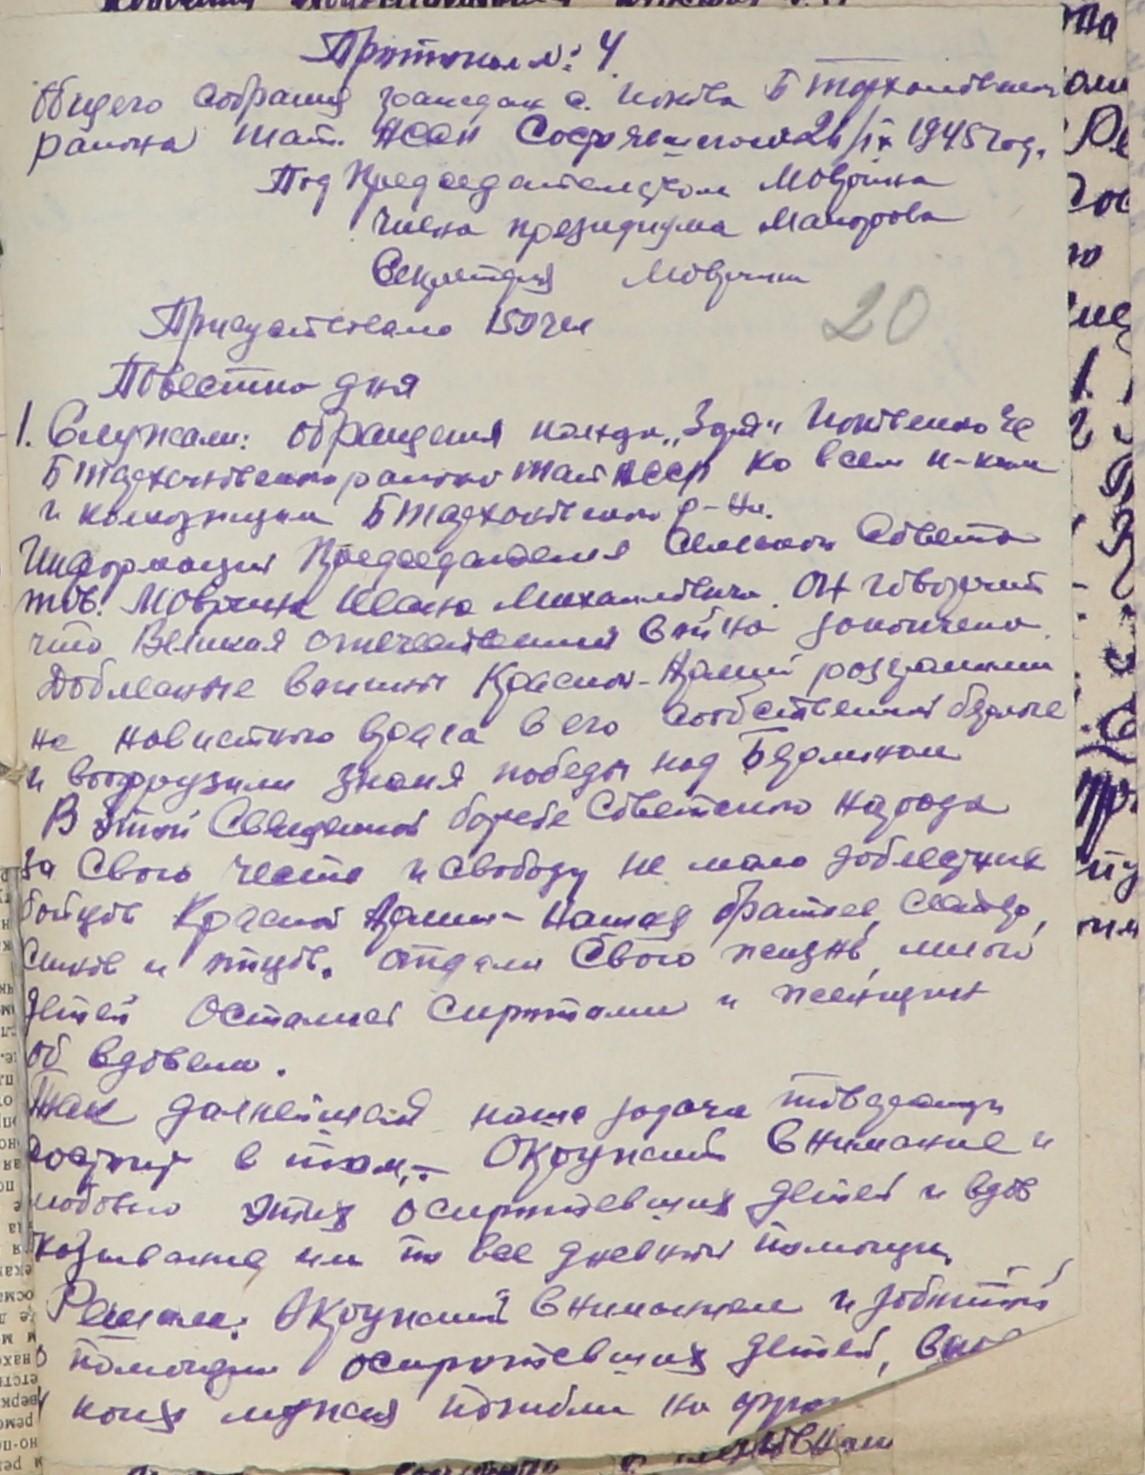 Протокол №: 4
Общего собрания граждан с. Б Тарханского
района Тат. АССР Состоявшегося 21/IX 1945 год.
Под Председательством Маврина
Члена президиума Майорова
Секретаря Маврин
20
Присутствовало 150 чел
Повестка дня
1. Слушали: обращения колхоза „Заря“
Б Тархановского района Тат АССР ко всем к-кам
и колхозницам Б Тархановского р-на.
Информация Председателя Сельского Совета
тов. Маврина Ивана Михайловича. Он говорит
что Великая отечественная война закончена.
Доблестные воины Красной-Армии разгромили
не навистного врага в его собственной берлоге
и вотрузили знамя победы над Берлином
В этой Священной борьбе Советского народа
за Свою честь и свободу не мало доблестных
бойцов Красной Армии - наших братьев,
сынов и отцов. отдали Свою жизнь, много
детей остались сиротами и женщин
об вдовели.
Так дальнейшая наша задача товарищи
состоит в том,- Окружить внимание и
любовью этих осиротевших детей и вдов
казывание им по все дневной помощи,
Решили: Окружить вниманием и заботой
помощи осиротевших детей,
коих мужья погибли на